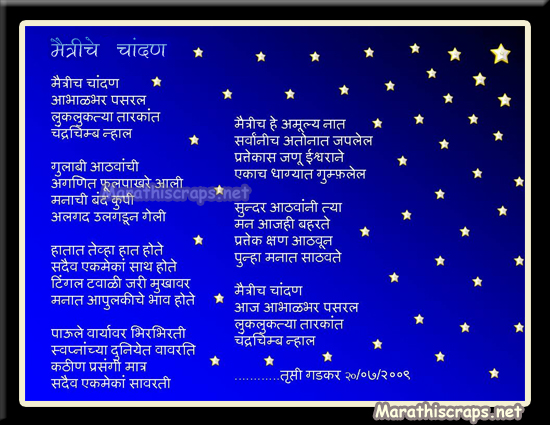 मैत्रीचे चांदण
मैत्रीच चांदण
आभाळभर पसरल
लुकलुकत्या तारकांत
चंद्रचिम्ब न्हाल
गुलाबी आठवांची
अगणित फूलपाखरे आली
मनाची बंद कुपी
अलगद उलगडून गेली
हातात तेव्हा हात होते
सदैव एकमेकां साथ होते
टिंगल टवाळी जरी मुखावर
मनात आपुलकीचे भाव होते
पाऊले वार्यावर भिरभिरती
स्वप्नांच्या दुनियेत वावरति
कठीण प्रसंगी मात्र
सदैव एकमेकां सावरती
मैत्रीच हे अमूल्य नात
सर्वांनीच अतोनात जपलेल
प्रत्तेकास जणू ईश्वराने
एकाच धाग्यात गुम्फ़लेल
सुन्दर आठवांनी त्या
मन आजही बहरते
प्रत्तेक क्षण आठवून
पुन्हा मनात साठवते
मैत्रीच चांदण
आज आभाळभर पसरल
लुकलुकत्या तारकांत
चंद्रचिम्ब न्हाल
............तृप्ती गडकर २०/०७/२००९
Marathiscraps.net
Marathiscraps.net